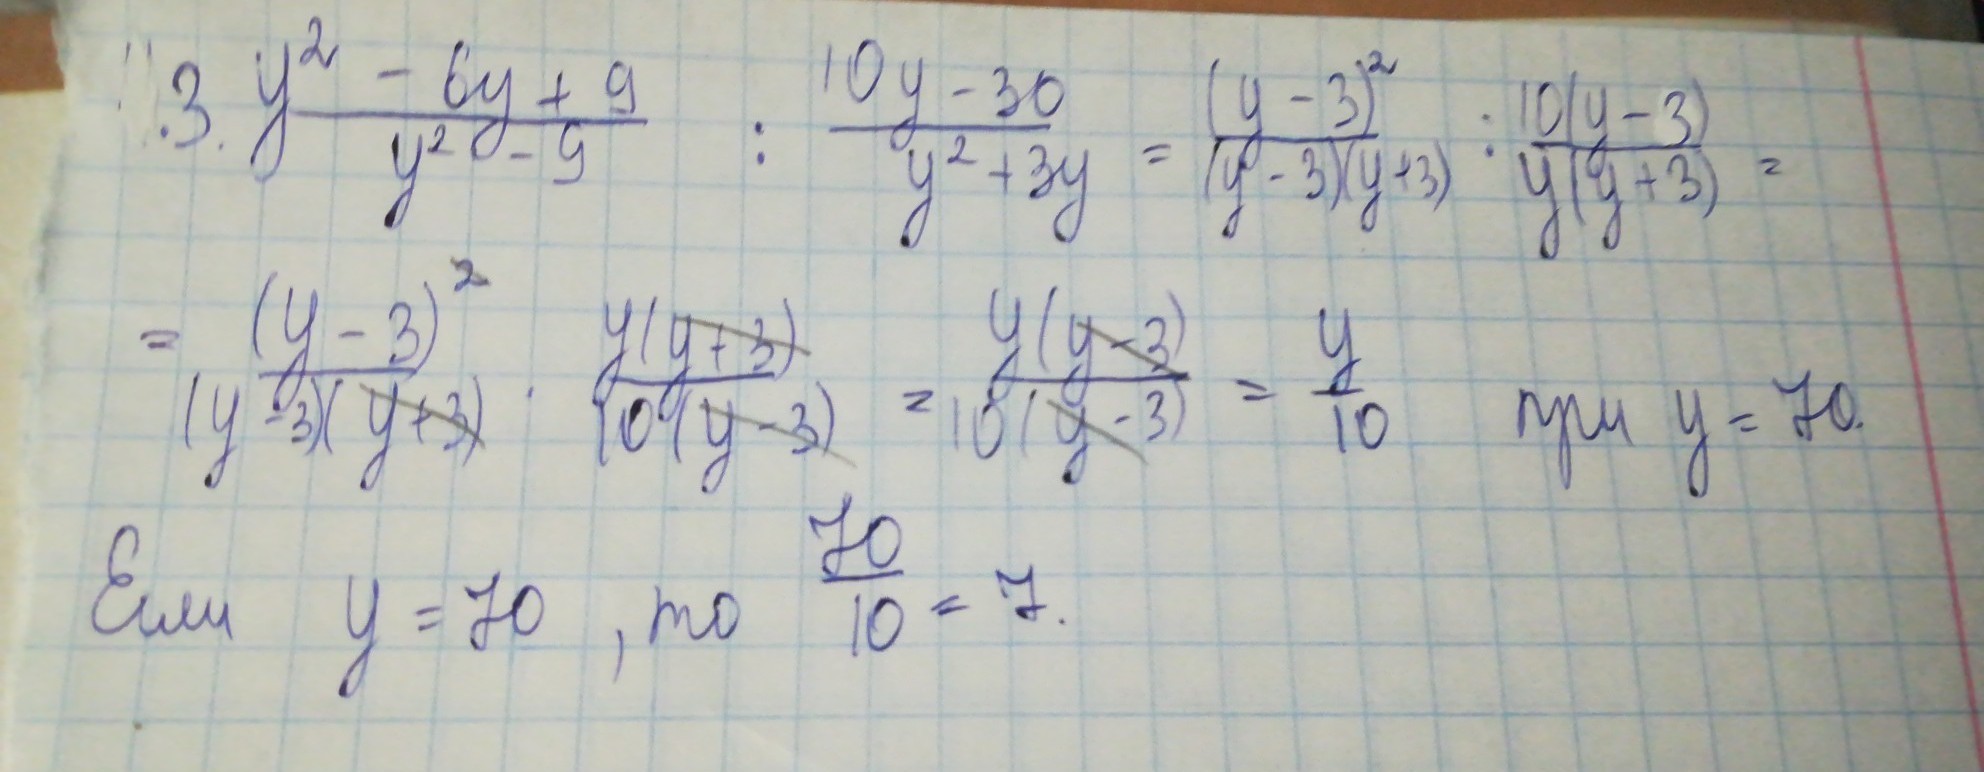 3. (y² - 6y + 9)/(y² - 9) : (10y - 30)/(y² + 3y) = (y - 3)²/((y - 3)(y + 3)) : 10(y - 3)/(y(y + 3)) =
= (y - 3)²/((y - 3)(y + 3)) · y(y + 3)/(10(y - 3)) = y(y - 3)/(10(y - 3)) = y/10 при y = 70.
Если y = 70, то 70/10 = 7.